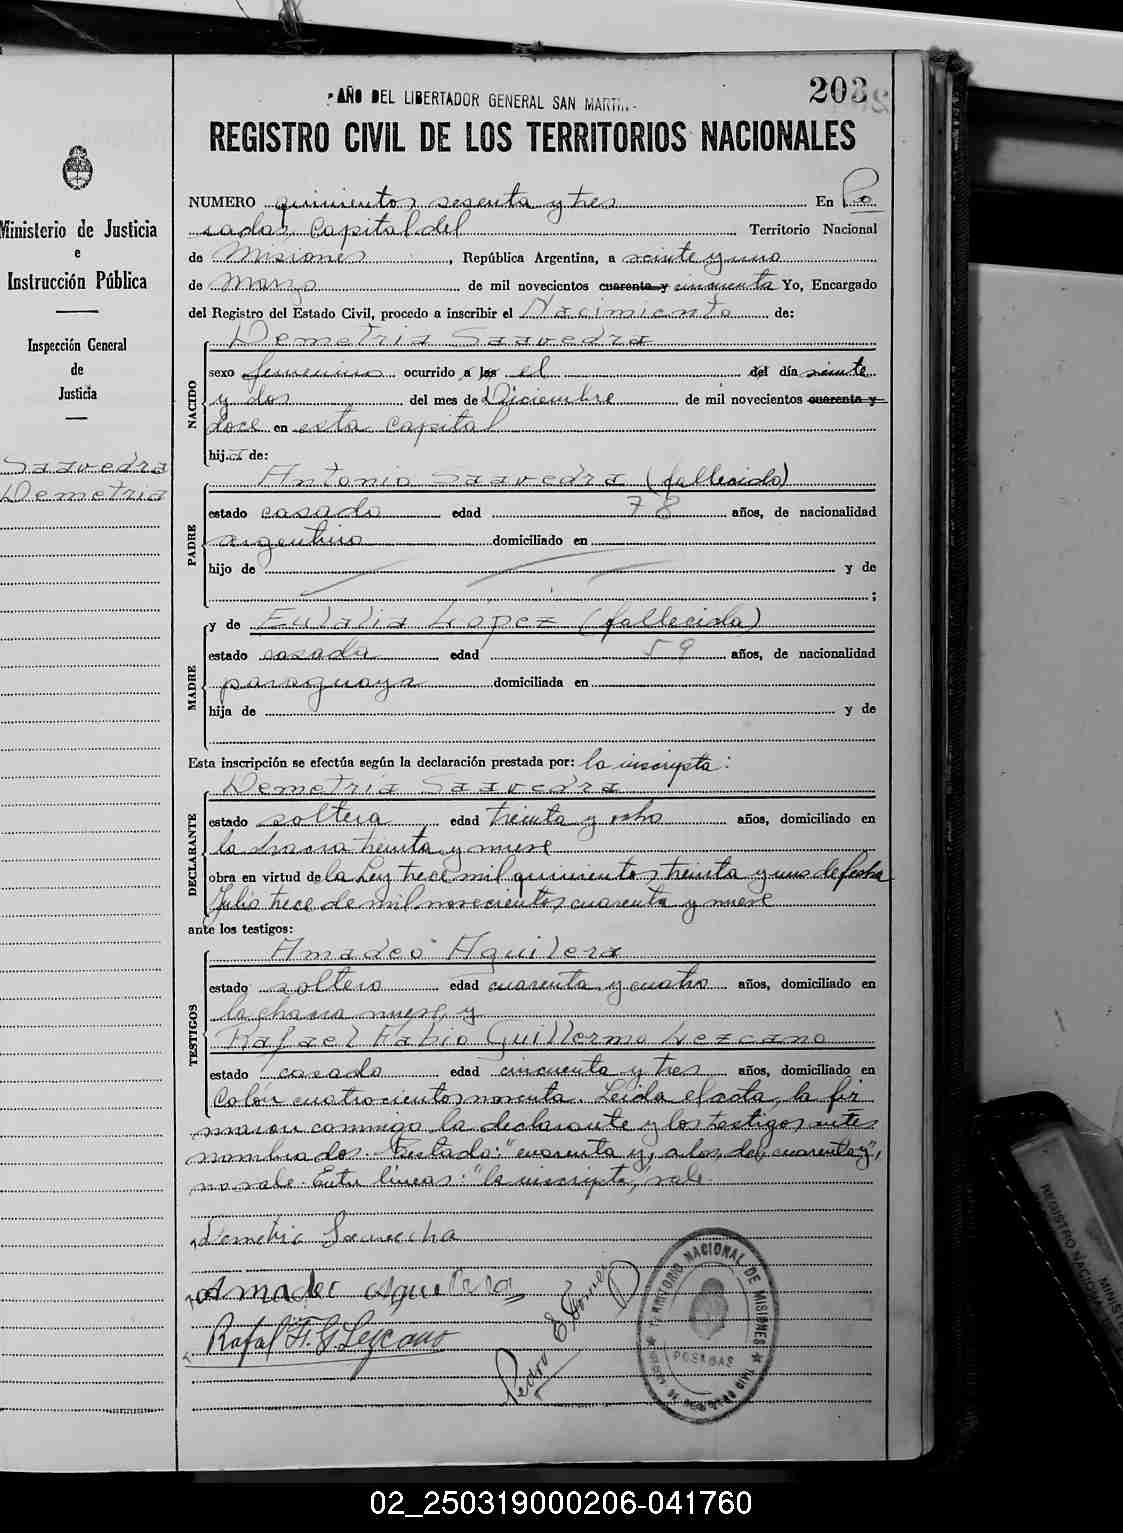 203
AÑO DEL LIBERTADOR GENERAL SAN MARTIN
REGISTRO CIVIL DE LOS TERRITORIOS NACIONALES
Ministerio de Justicia
e
Instrucción Pública
Inspección General
de
Justicia
Saavedra
Demetria
NUMERO quinientos sesenta y tres En Po
sadas, Capital del Territorio Nacional
de Misiones, República Argentina, a veinte y uno
de Marzo de mil novecientos cuarenta y cincuenta Yo, Encargado
del Registro del Estado Civil, procedo a inscribir el Nacimiento de:
NACIDO
Demetria Saavedra
sexo femenino ocurrido a las el del día veinte
y dos del mes de Diciembre de mil novecientos cuarenta y
doce en esta Capital
hija de:
PADRE
Antonio Saavedra (fallecido)
estado casado edad 78 años, de nacionalidad
argentino domiciliado en
hijo de y de
;
MADRE
y de Eulalia Lopez (fallecida)
estado casada edad 59 años, de nacionalidad
paraguaya domiciliada en
hija de y de
Esta inscripción se efectúa según la declaración prestada por: la inscripta:
DECLARANTE
Demetria Saavedra
estado soltera edad treinta y ocho años, domiciliado en
la chacra treinta y nueve
obra en virtud de la Ley trece mil quinientos treinta y uno de fecha
Julio trece de mil novecientos cuarenta y nueve
ante los testigos:
TESTIGOS
Amadeo Aguilera
estado soltero edad cuarenta y cuatro años, domiciliado en
la chacra nueve, y
Rafael Fabio Guillermo Lezcano
estado casado edad cincuenta y tres años, domiciliado en
Colón cuatrocientos noventa. Leida el acta, la fir
maron conmigo la declarante y los testigos antes
nombrados. Testado: "cuarenta y, a las, del, cuarenta y",
no vale. Entre líneas: "la inscripta", vale.
Demetria Saavedra
Amadeo Aguilera
Rafael F. G. Lezcano
Pedro E.
TERRITORIO NACIONAL DE MISIONES
POSADAS
REGISTRO NACIONAL
MINISTE
02_250319000206-041760